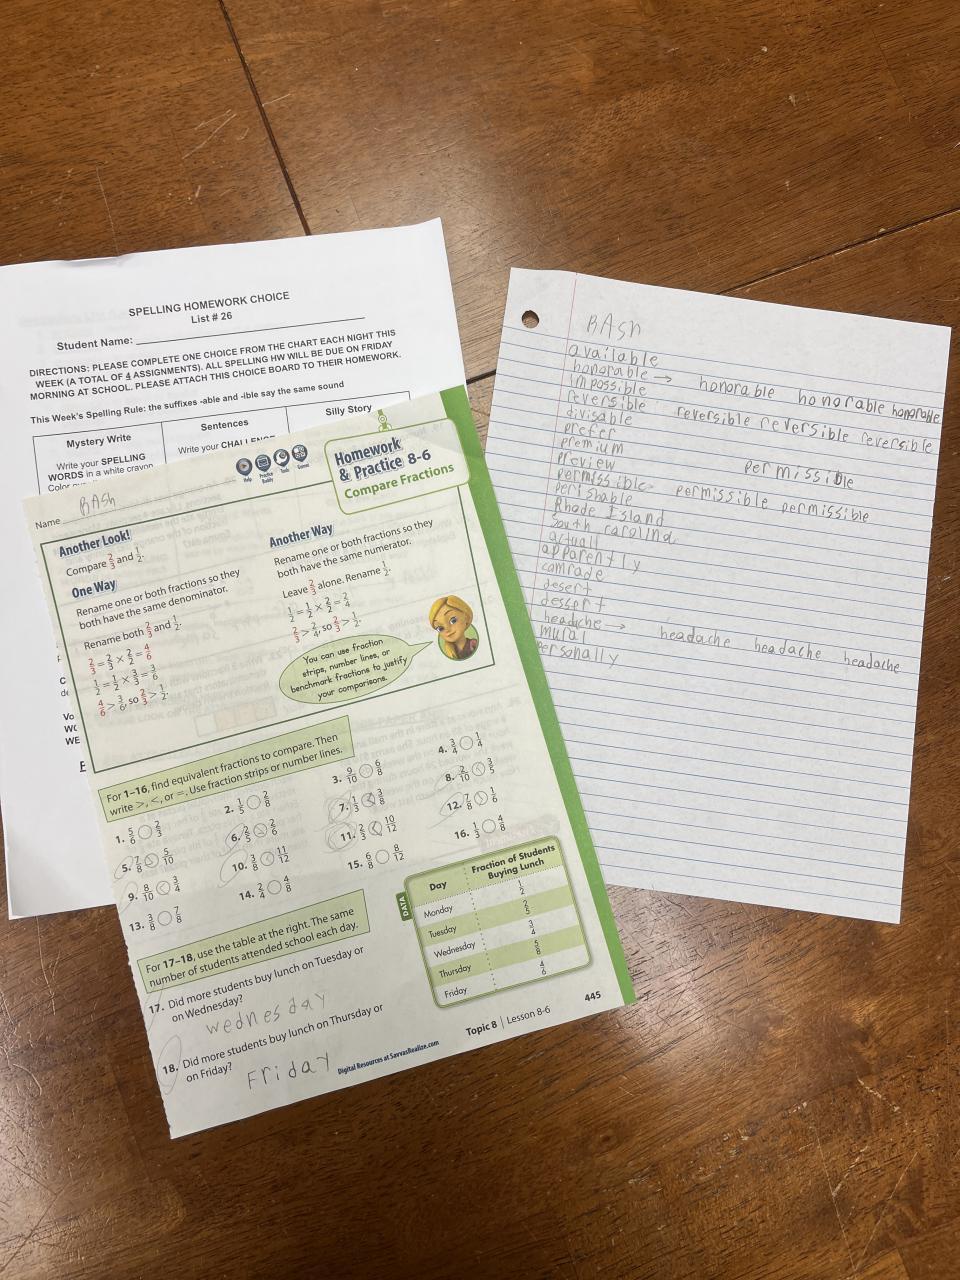 SPELLING HOMEWORK CHOICE
List # 26
Student Name:
DIRECTIONS: PLEASE COMPLETE ONE CHOICE FROM THE CHART EACH NIGHT THIS
WEEK (A TOTAL OF 4 ASSIGNMENTS). ALL SPELLING HW WILL BE DUE ON FRIDAY
MORNING AT SCHOOL. PLEASE ATTACH THIS CHOICE BOARD TO THEIR HOMEWORK.
This Week's Spelling Rule: the suffixes -able and -ible say the same sound
Mystery Write
Write your SPELLING
WORDS in a white crayon
Sentences
Write your
Silly Story
Homework
& Practice 8-6
Compare Fractions
Help
Practice Buddy
Tools
Games
Name BASh
Another Look!
Compare 2/3 and 1/2.
One Way
Rename one or both fractions so they
both have the same denominator.
Rename both 2/3 and 1/2.
2/3 = 2/3 × 2/2 = 4/6
1/2 = 1/2 × 3/3 = 3/6
4/6 > 3/6, so 2/3 > 1/2.
Another Way
Rename one or both fractions so they
both have the same numerator.
Leave 2/3 alone. Rename 1/2.
1/2 = 1/2 × 2/2 = 2/4
2/3 > 2/4, so 2/3 > 1/2.
You can use fraction
strips, number lines, or
benchmark fractions to justify
your comparisons.
For 1–16, find equivalent fractions to compare. Then
write >, <, or =. Use fraction strips or number lines.
1. 5/6 ○ 2/3
2. 1/5 ○ 2/8
3. 9/10 ○ 6/8
4. 3/4 ○ 1/4
5. 7/8 > 5/10
6. 2/5 > 2/6
7. 1/3 < 3/8
8. 2/10 < 3/5
9. 8/10 < 3/4
10. 3/8 < 11/12
11. 2/3 < 10/12
12. 7/8 > 1/6
13. 3/8 ○ 7/8
14. 2/4 ○ 4/8
15. 6/8 ○ 8/12
16. 1/3 ○ 4/8
For 17–18, use the table at the right. The same
number of students attended school each day.
17. Did more students buy lunch on Tuesday or
on Wednesday?
wednesday
18. Did more students buy lunch on Thursday or
on Friday?
Friday
DATA
Day Fraction of Students
Buying Lunch
Monday 1/2
Tuesday 2/5
Wednesday 3/4
Thursday 5/8
Friday 4/6
Digital Resources at SavvasRealize.com
Topic 8 | Lesson 8-6
445
BASh
available
honorable → honorable honorable honorable
impossible
reversible reversible reversible reversible
divisable
prefer
premium
preview
permissible permissible permissible permissible
perishable
Rhode Island
South carolina
actuall
apparently
comrade
desert
dessert
headache → headache headache headache
mural
personally